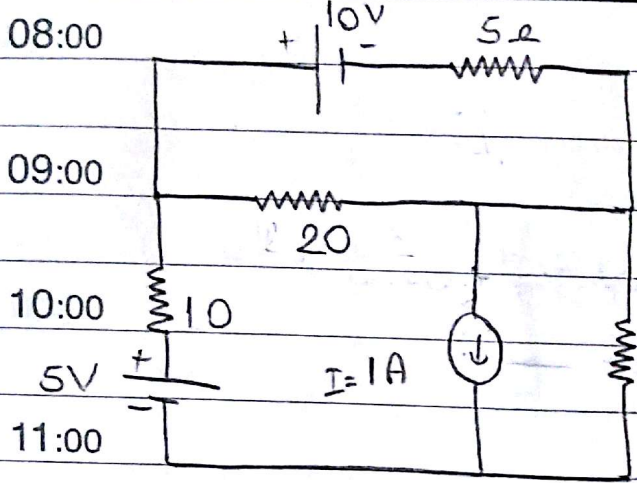 10V
08:00 + - 5Ω
09:00
20
10:00 10
+
5V I=1A
-
11:00